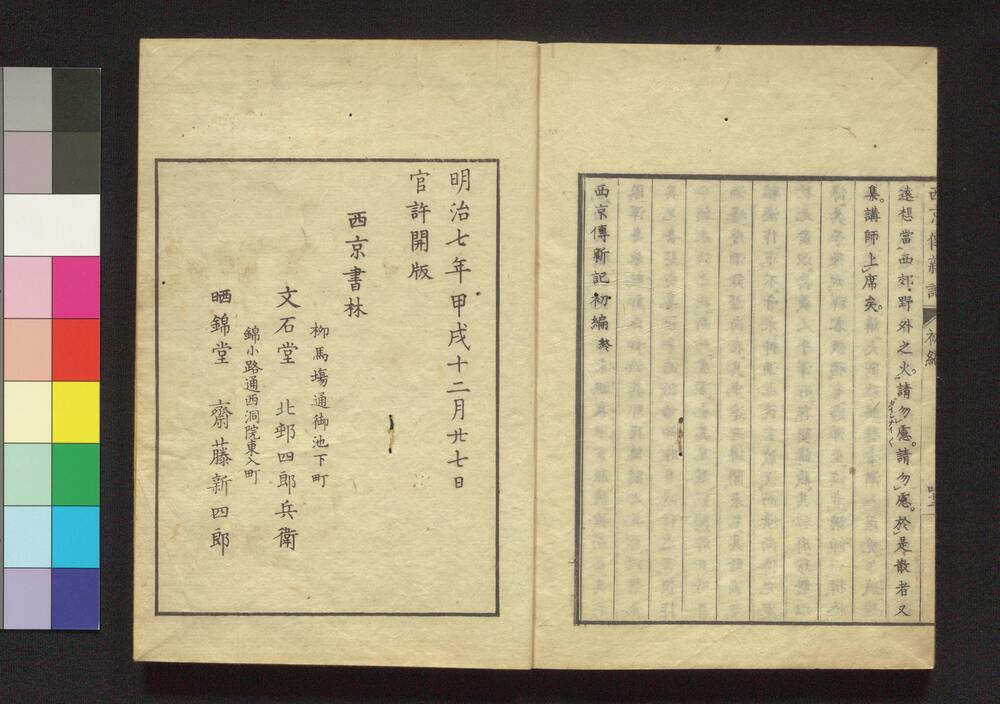 西京傳新記 初編
遠想當西郊野外之火。請勿慮。請勿慮。於是散者又
集。講師上席矣。
西京傳新記初編終
明治七年甲戌十二月廿七日
官許開版
西京書林
柳馬塲通御池下町
文石堂 北邨四郎兵衛
錦小路通西洞院東入町
晒錦堂 齋藤新四郎